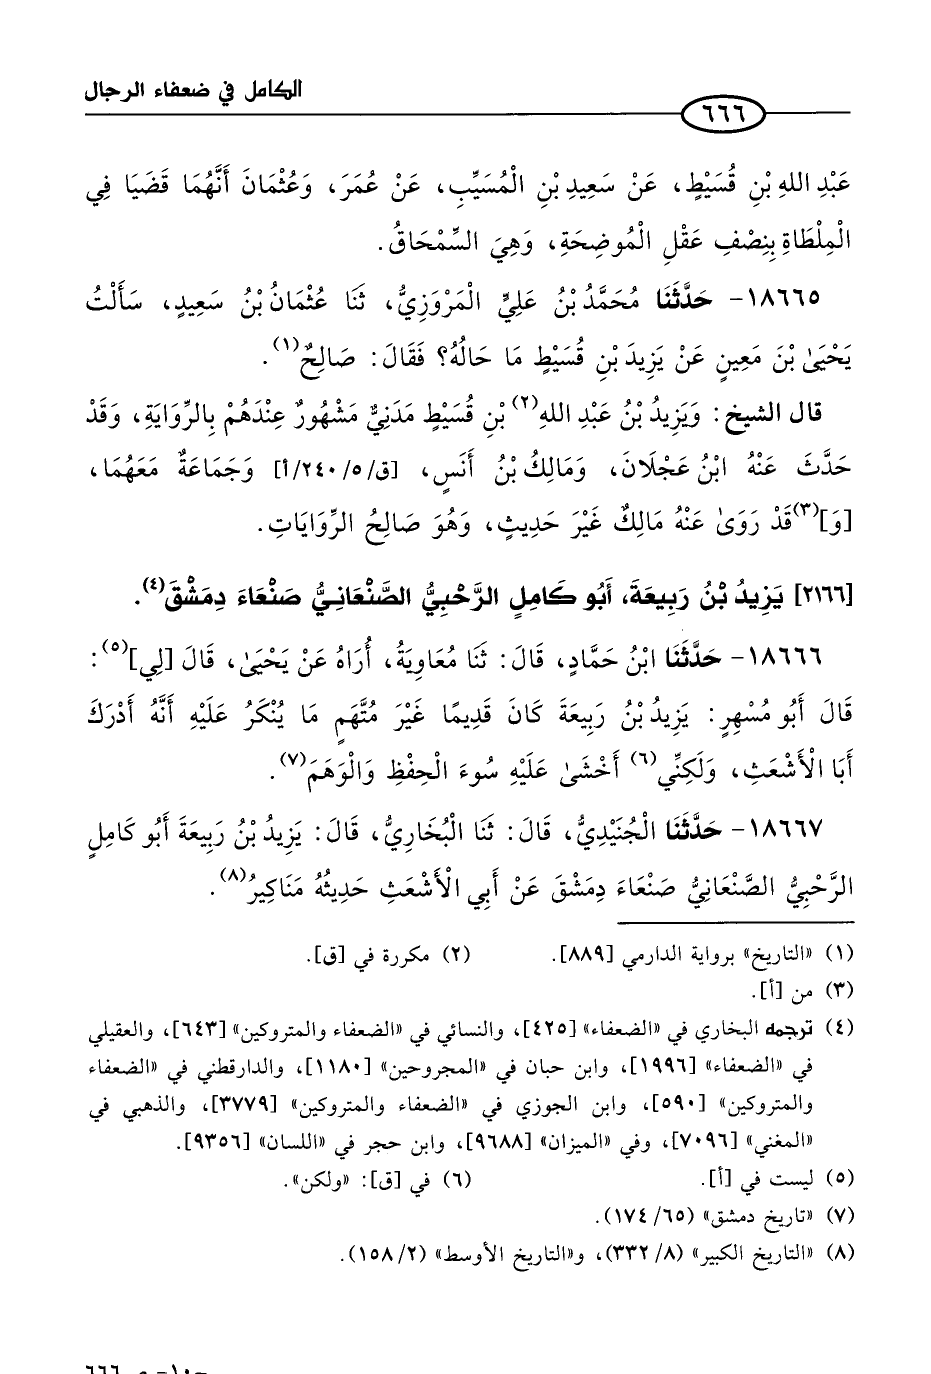 الكامل في ضعفاء الرجال
٦٦٦
عَبْدِ اللهِ بْنِ قُسَيْطٍ، عَنْ سَعِيدِ بْنِ الْمُسَيِّبِ، عَنْ عُمَرَ، وَعُثْمَانَ أَنَّهُمَا قَضَيَا فِي
الْمِلْطَاةِ بِنِصْفِ عَقْلِ الْمُوضِحَةِ، وَهِيَ السِّمْحَاقُ.
١٨٦٦٥- حَدَّثَنَا مُحَمَّدُ بْنُ عَلِيٍّ الْمَرْوَزِيُّ، ثَنَا عُثْمَانُ بْنُ سَعِيدٍ، سَأَلْتُ
يَحْيَىٰ بْنَ مَعِينٍ عَنْ يَزِيدَ بْنِ قُسَيْطٍ مَا حَالُهُ؟ فَقَالَ: صَالِحٌ(١).
قال الشيخ: وَيَزِيدُ بْنُ عَبْدِ اللهِ(٢) بْنِ قُسَيْطٍ مَدَنِيٌّ مَشْهُورٌ عِنْدَهُمْ بِالرِّوَايَةِ، وَقَدْ
حَدَّثَ عَنْهُ ابْنُ عَجْلَانَ، وَمَالِكُ بْنُ أَنَسٍ، [ق/٢٤٠/٥/أ] وَجَمَاعَةٌ مَعَهُمَا،
[وَ](٣)قَدْ رَوَىٰ عَنْهُ مَالِكٌ غَيْرَ حَدِيثٍ، وَهُوَ صَالِحُ الرِّوَايَاتِ.
[٢١٦٦] يَزِيدُ بْنُ رَبِيعَةَ، أَبُو كَامِلٍ الرَّحْبِيُّ الصَّنْعَانِيُّ صَنْعَاءَ دِمَشْقَ(٤).
١٨٦٦٦- حَدَّثَنَا ابْنُ حَمَّادٍ، قَالَ: ثَنَا مُعَاوِيَةُ، أُرَاهُ عَنْ يَحْيَىٰ، قَالَ [لِي](٥):
قَالَ أَبُو مُسْهِرٍ: يَزِيدُ بْنُ رَبِيعَةَ كَانَ قَدِيمًا غَيْرَ مُتَّهَمٍ مَا يُنْكَرُ عَلَيْهِ أَنَّهُ أَدْرَكَ
أَبَا الْأَشْعَثِ، وَلَكِنِّي(٦) أَخْشَىٰ عَلَيْهِ سُوءَ الْحِفْظِ وَالْوَهَمَ(٧).
١٨٦٦٧- حَدَّثَنَا الْجُنَيْدِيُّ، قَالَ: ثَنَا الْبُخَارِيُّ، قَالَ: يَزِيدُ بْنُ رَبِيعَةَ أَبُو كَامِلٍ
الرَّحْبِيُّ الصَّنْعَانِيُّ صَنْعَاءَ دِمَشْقَ عَنْ أَبِي الْأَشْعَثِ حَدِيثُهُ مَنَاكِيرُ(٨).
(١) «التاريخ» برواية الدارمي [٨٨٩]. (٢) مكررة في [ق].
(٣) من [أ].
(٤) ترجمه البخاري في «الضعفاء» [٤٢٥]، والنسائي في «الضعفاء والمتروكين» [٦٤٣]، والعقيلي
في «الضعفاء» [١٩٩٦]، وابن حبان في «المجروحين» [١١٨٠]، والدارقطني في «الضعفاء
والمتروكين» [٥٩٠]، وابن الجوزي في «الضعفاء والمتروكين» [٣٧٧٩]، والذهبي في
«المغني» [٧٠٩٦]، وفي «الميزان» [٩٦٨٨]، وابن حجر في «اللسان» [٩٣٥٦].
(٥) ليست في [أ]. (٦) في [ق]: «ولكن».
(٧) «تاريخ دمشق» (٦٥/ ١٧٤).
(٨) «التاريخ الكبير» (٨/ ٣٣٢)، و«التاريخ الأوسط» (٢/ ١٥٨).